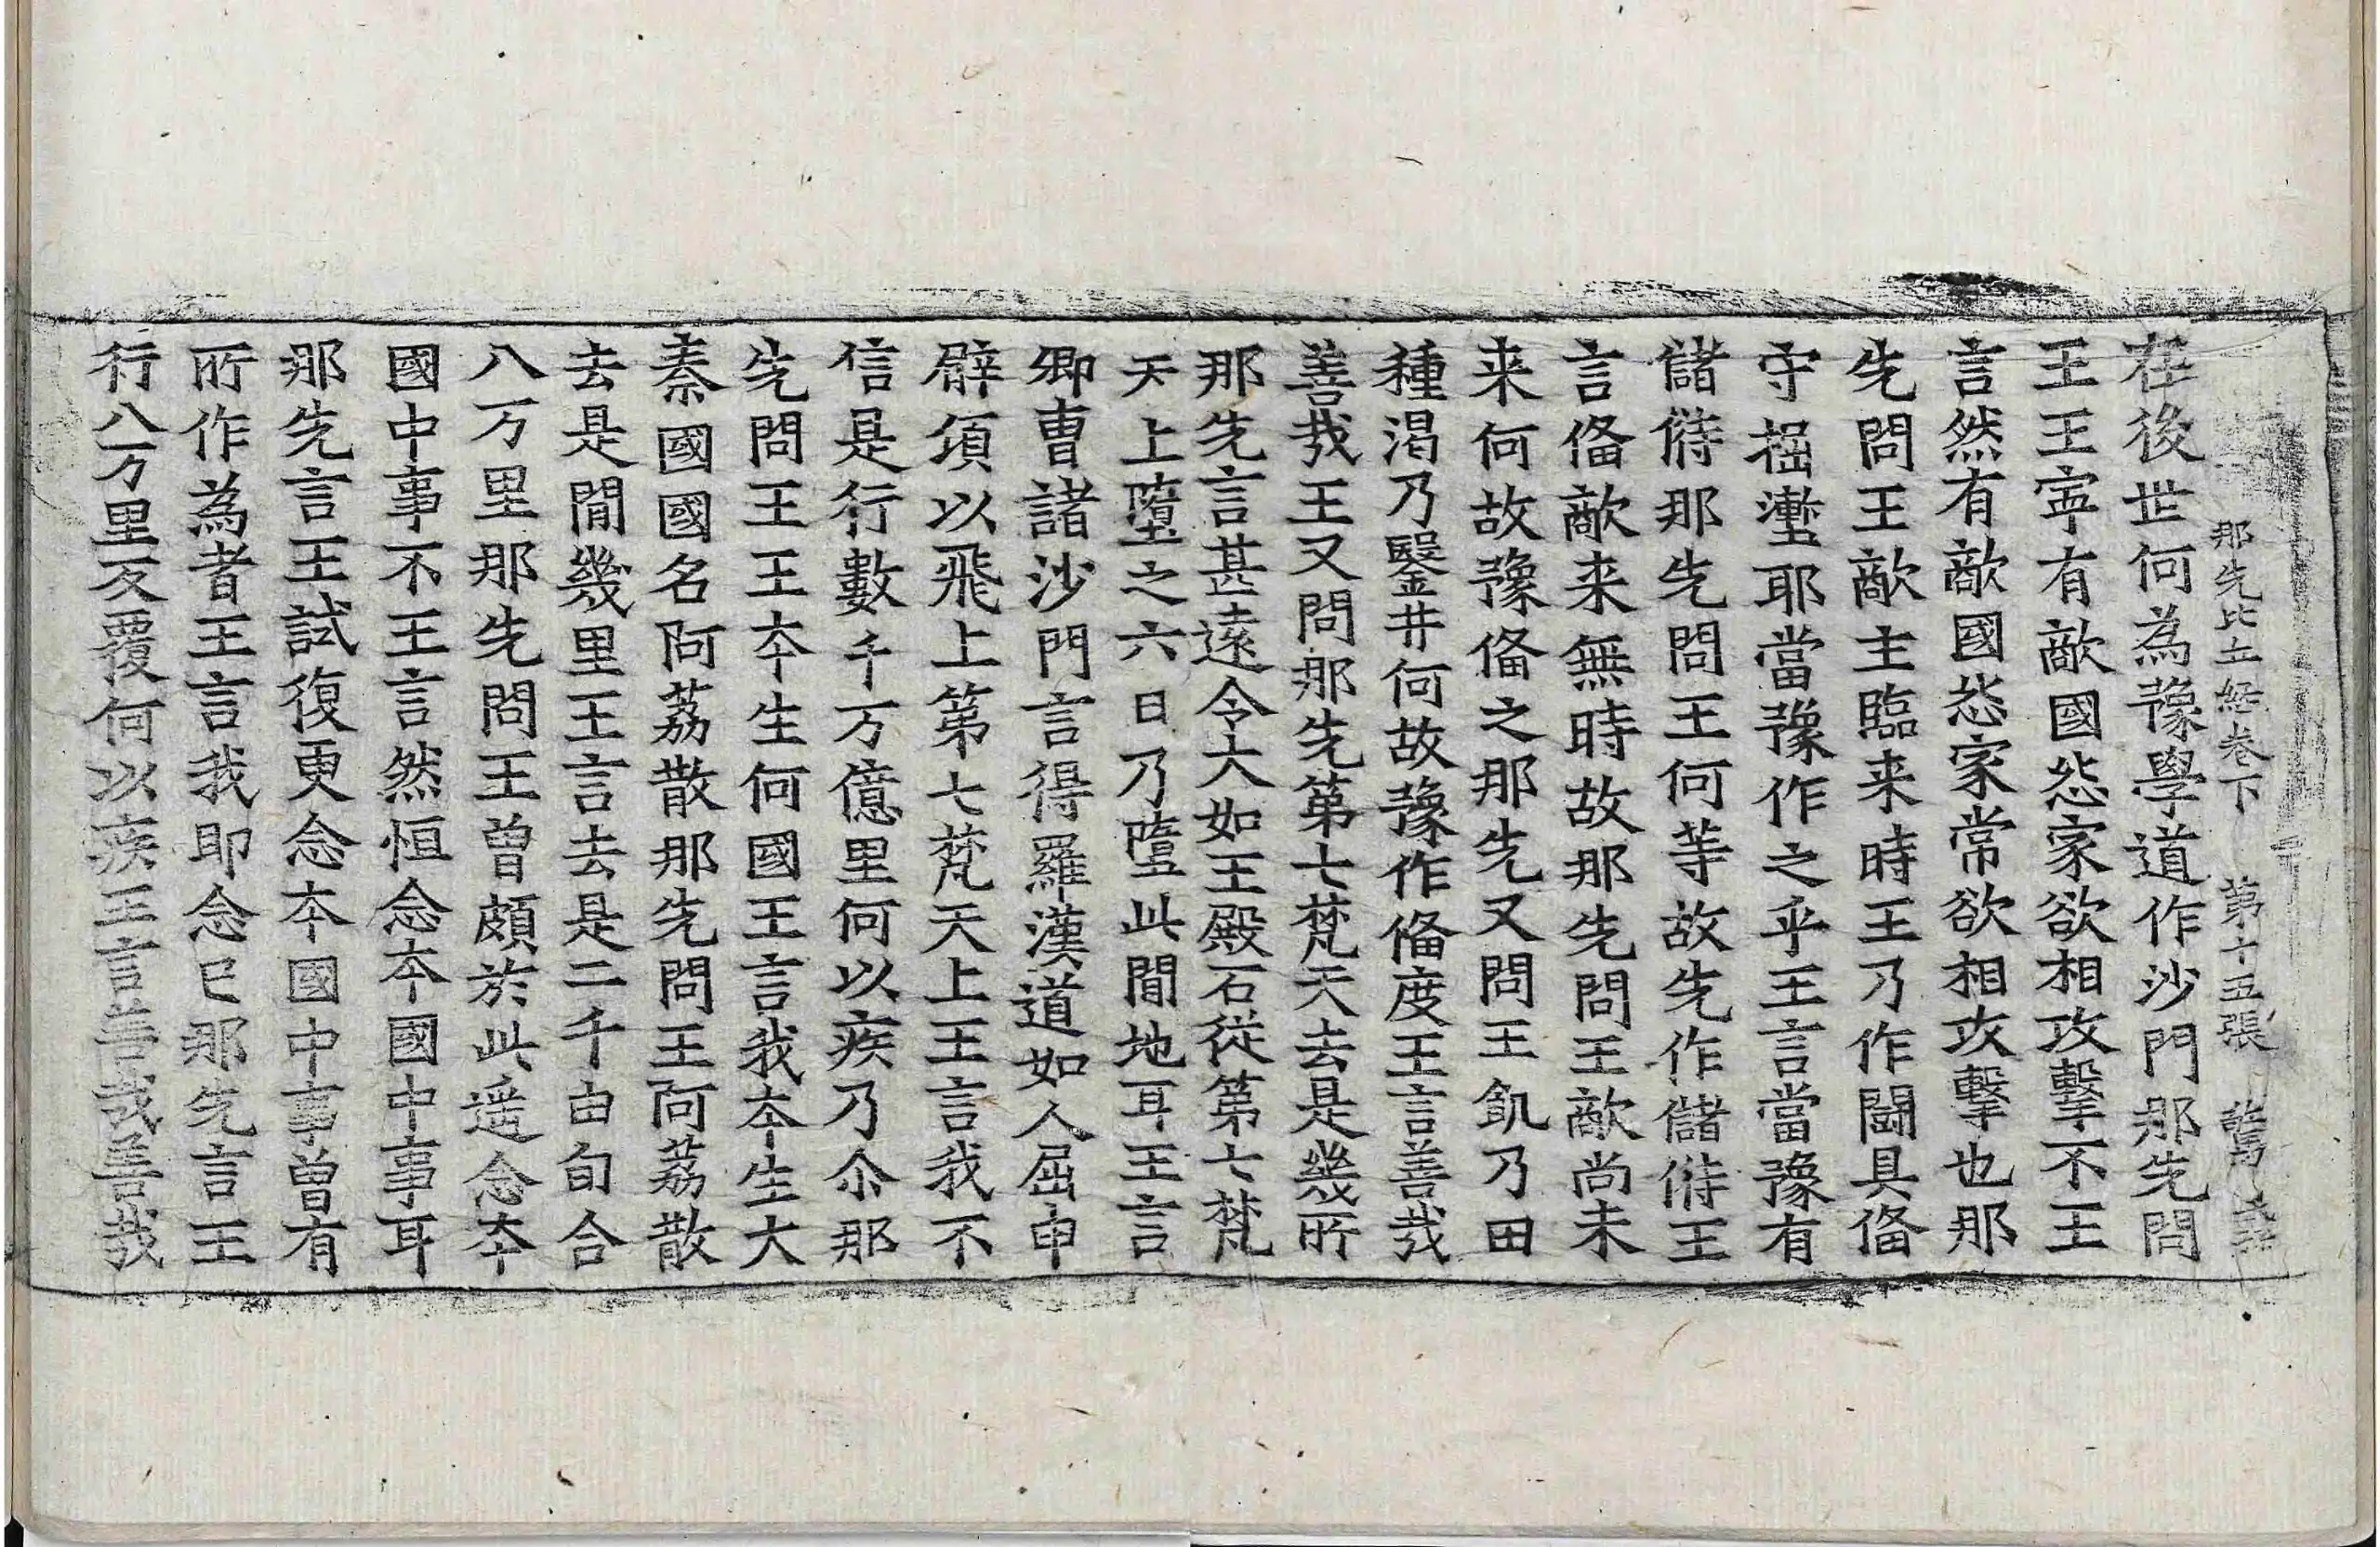 那先比丘經卷下 第十五張
在後世何為豫學道作沙門那先問
王王寧有敵國怨家欲相攻擊不王
言然有敵國怨家常欲相攻擊也那
先問王敵主臨来時王乃作鬪具俻
守掘壍耶當豫作之乎王言當豫有
儲偫那先問王何等故先作儲偫王
言俻敵来無時故那先問王敵尚未
来何故豫俻之那先又問王飢乃田
種渴乃鑿井何故豫作俻度王言善哉
善哉王又問那先第七梵天去是幾所
那先言甚遠令大如王殿石從第七梵
天上墮之六日乃墮此間地耳王言
卿曹諸沙門言得羅漢道如人屈申
臂項以飛上第七梵天上王言我不
信是行數千万億里何以疾乃尒那
先問王王夲生何國王言我夲生大
秦國國名阿荔散那先問王阿荔散
去是間幾里王言去是二千由旬合
八万里那先問王曾頗於此遥念夲
國中事不王言然恒念夲國中事耳
那先言王試復更念夲國中事曾有
所作為者王言我即念已那先言王
行八万里反覆何以疾王言善哉善哉